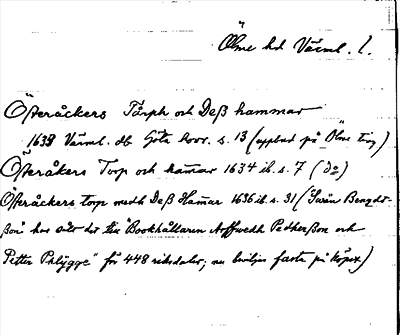 Ölme hd Värml. l.
Österåckers Tårph och Deß hammar
1633 Värml. db Göta hovr. s. 13 (uppbud på Ölme ting)
Österåkers Torp och ham̄ar 1634 ib. s. 7 (do)
Österåckers torp medh Deß Ham̄ar 1636 ib. s. 31 (Swän Bengds-
ßon hor såldt det till "Bookhållaren Arffwedh Pedherßon och
Petter Phlÿgge" för 448 riksdaler; nu beviljas fasta på köpet)